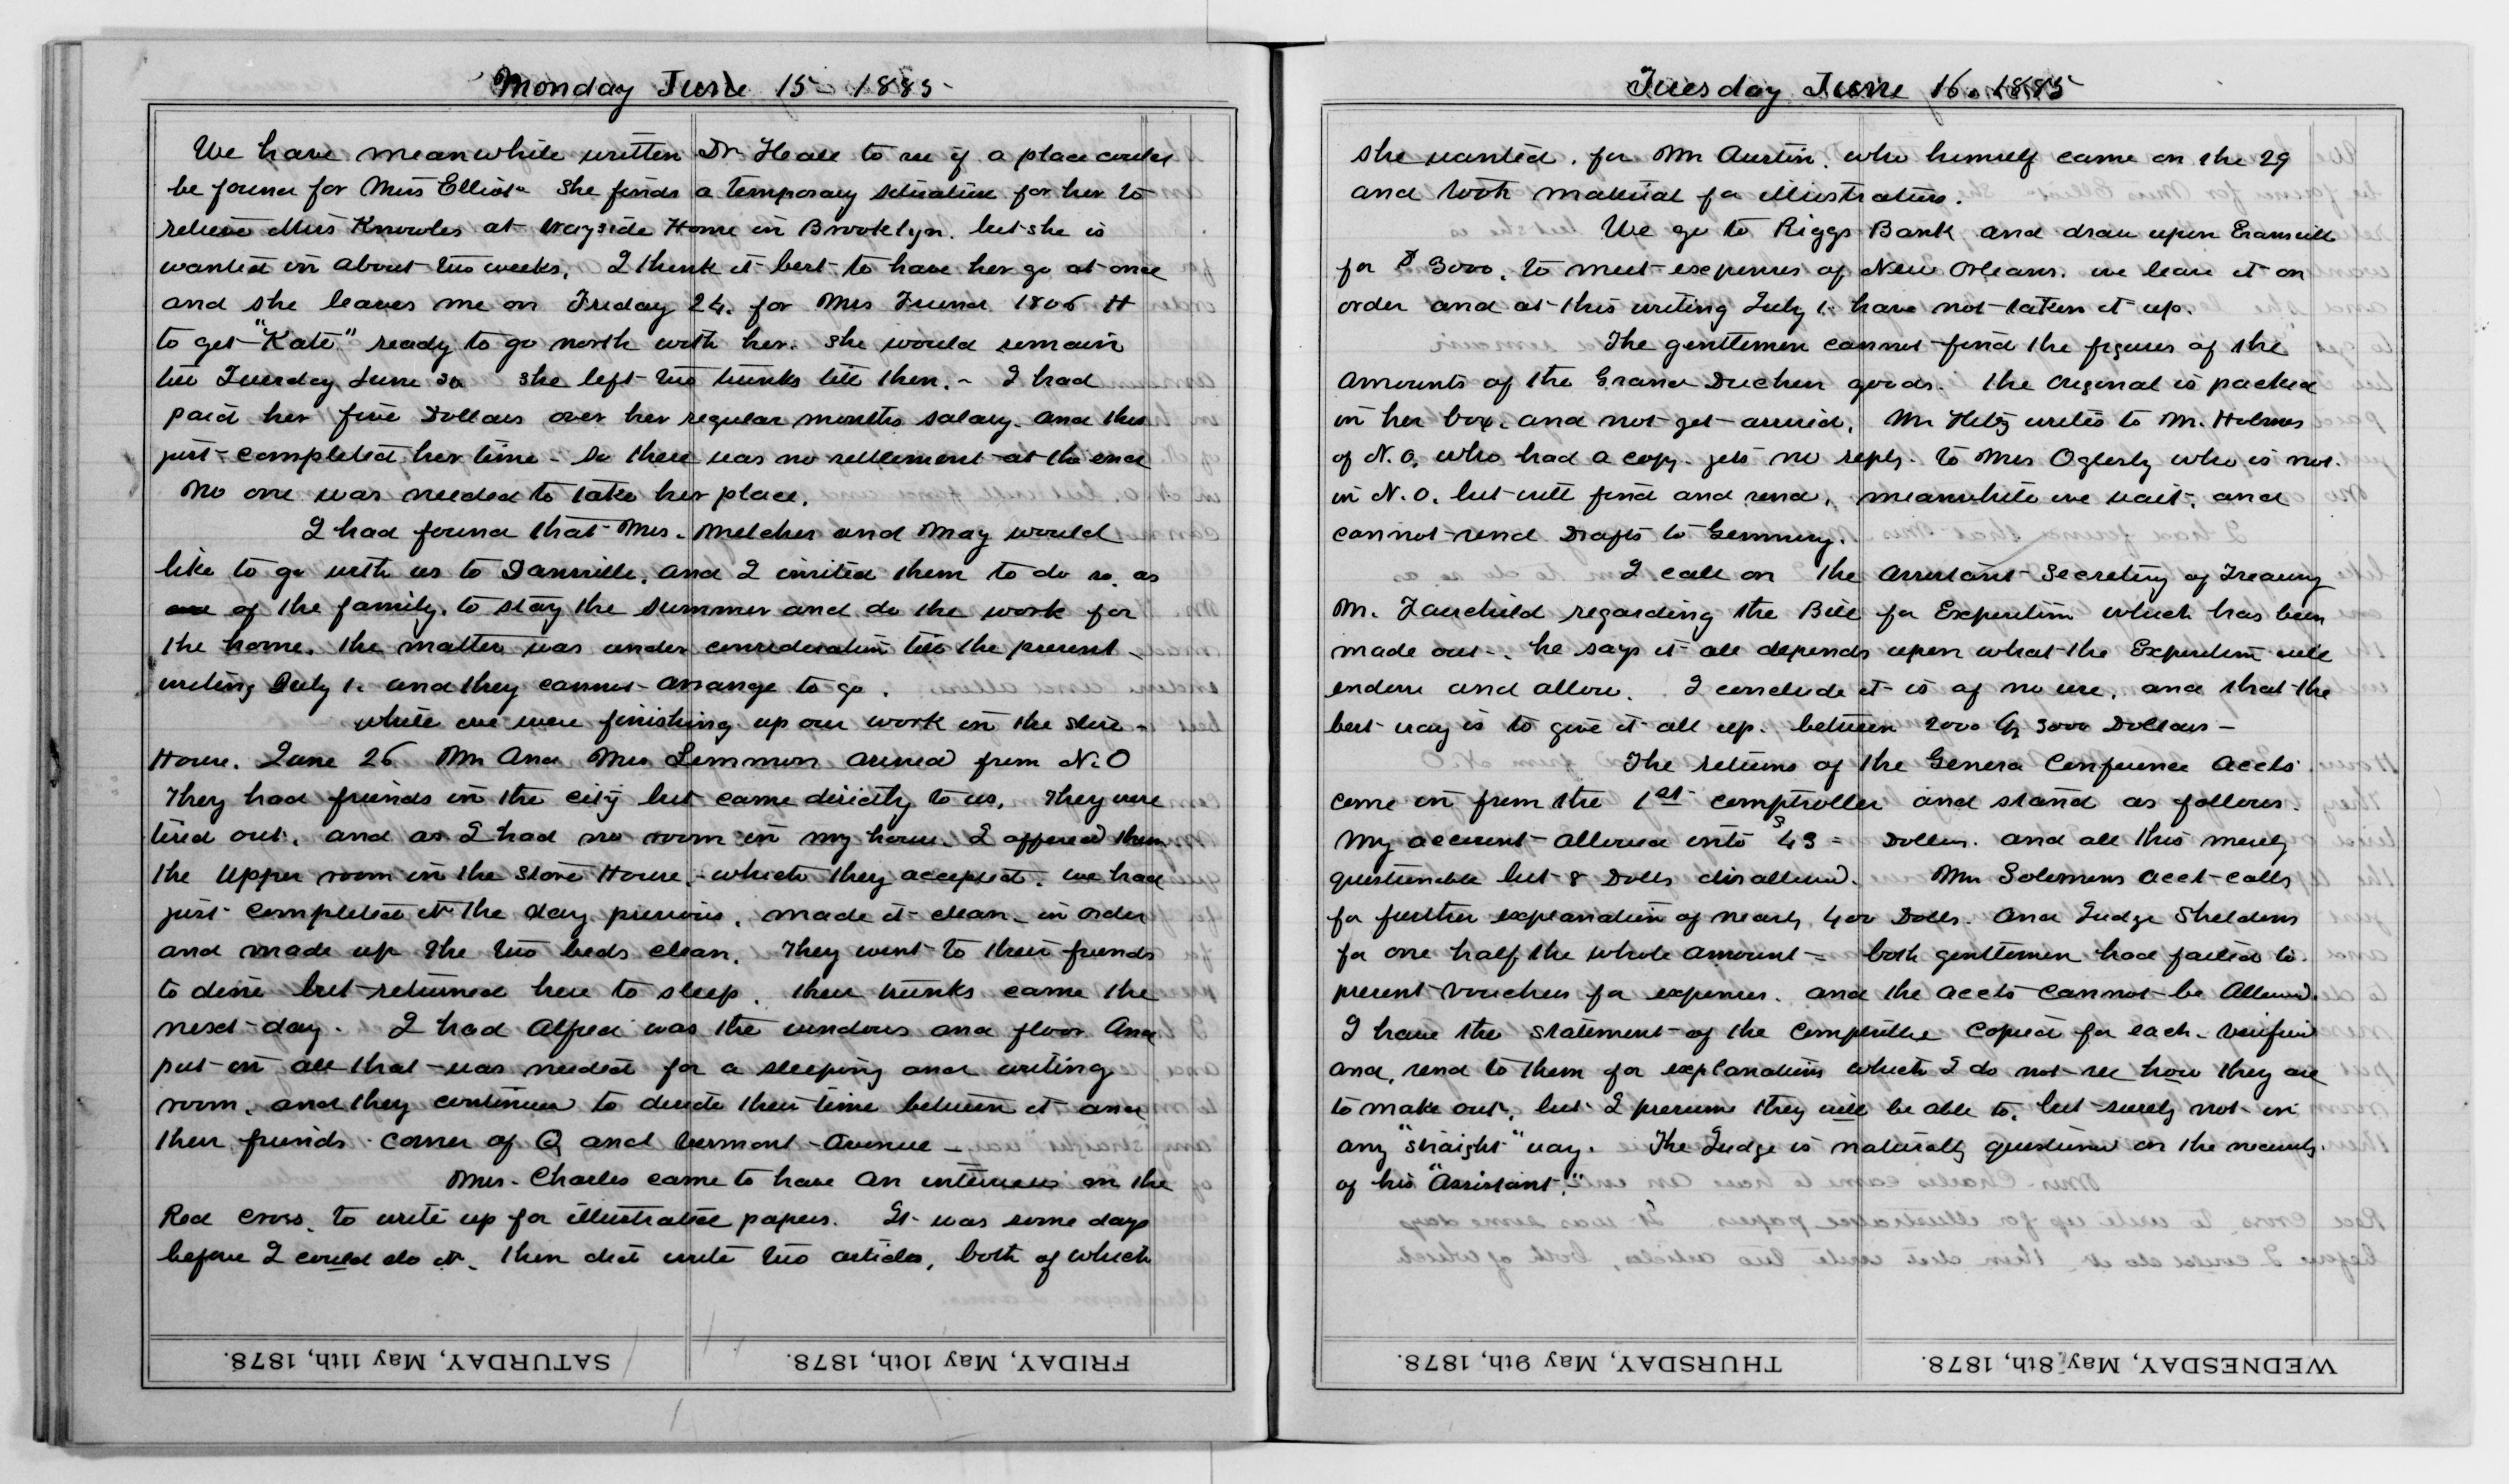 Monday June 15 - 1885 -
We have meanwhile written Dr Heale to see if a place could
be found for Miss Elliot. She finds a temporary situation for her to
relieve Miss Knowles at Wayside Home in Brooklyn. but she is
wanted in about two weeks. I think it best to have her go at once
and she leaves me on Friday 24. for Mrs Friend 1806 H
to get "Kate" ready to go north with her. She would remain
till Tuesday June 30 she left two trunks till then. - I had
paid her five Dollars over her regular months salary. and this
just completed her time - So there was no settlement at the end
No one was needed to take her place.
I had found that Mrs. Melcher and May would
like to go with us to Dansville. and I invited them to do so. as
of the family. to stay the summer and do the work for
the home. the matter was under consideration till the present -
writing July 1. and they cannot arrange to go.
while we were finishing up our work in the store -
House. June 26 Mr And Mrs Lemmon arrived from N.O
They had friends in the city but came directly to us. They were
tired out. and as I had no room in my house. I offered them
the Upper room in the Store House. - which they accepted. we had
just completed it the day previous. made it clean - in order
and made up the two beds clean. They went to their friends
to dine but returned here to sleep. their trunks came the
next day. I had Alfred was the windows and floor And
put in all that was needed for a sleeping and writing
room. and they continued to divide their time between it and
their friends. corner of Q and Vermont Avenue -
Mrs. Charles came to have an interview on the
Red Cross. to write up for illustrated papers. It was some days
before I could do it. then did write two articles, both of which
SATURDAY, May 11th, 1878.
FRIDAY, May 10th, 1878.
Tuesday June 16. 1885
she wanted. for Mr Austin. who himself came on the 29
and took material for illustrations.
We go to Riggs Bank and draw upon Dansville
for $ 3000. to meet expenses of New Orleans. we leave it on
order and at this writing July 1. have not taken it up.
The gentlemen cannot find the figures of the
amounts of the Grand Duchess goods. the original is packed
in her box. and not yet arrived. Mr Hitz writes to M. Holmes
of N.O. who had a copy. gets no reply. to Mrs Oglesby who is not
in N.O. but will find and send. meanwhile we wait. and
cannot send Drafts to Germany.
I call on the Assistant Secretary of Treasury
M. Fairchild regarding the Bill for Exposition which has been
made out -. he says it all depends upon what the Exposition will
endorse and allow. I conclude it is of no use. and that the
best way is to give it all up. between 2000 & 3000 Dollars -
The returns of the Geneva Conference accts
come in from the 1st comptroller and stand as follows.
My account allowed into 43 = Dollars. and all this merely
questionable but 8 Dolls disallowed. Mr Solomons acct calls
for further explanation of nearly 400 Dolls. And Judge Sheldons
for one half the whole amount = both gentlemen had failed to
present vouchers for expenses. and the accts cannot be Allowed.
I have the statement of the Comptroller copied for each. verified
and, send to them for explanations which I do not see how they are
to make out. but I presume they will be able to. but surely not in
any "straight" way. The Judge is naturally questioned on the necessity
of his "Assistant."
THURSDAY, May 9th, 1878.
WEDNESDAY, May 8th, 1878.